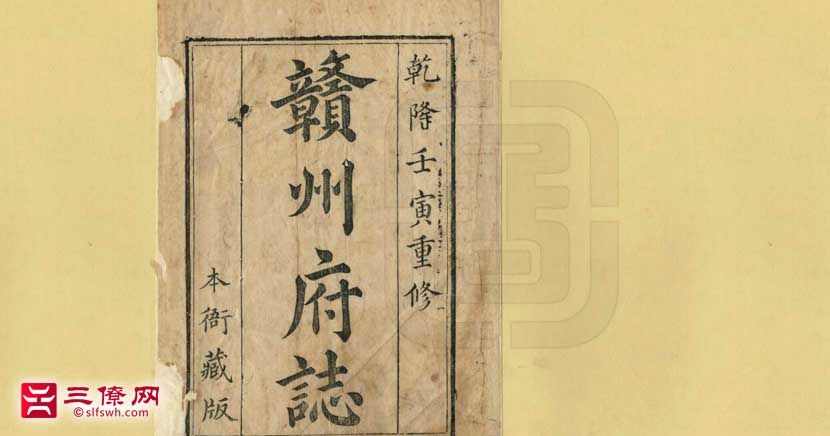 乾隆壬寅重修
贛州府誌
本衙藏版
三僚网
©slfswh.com